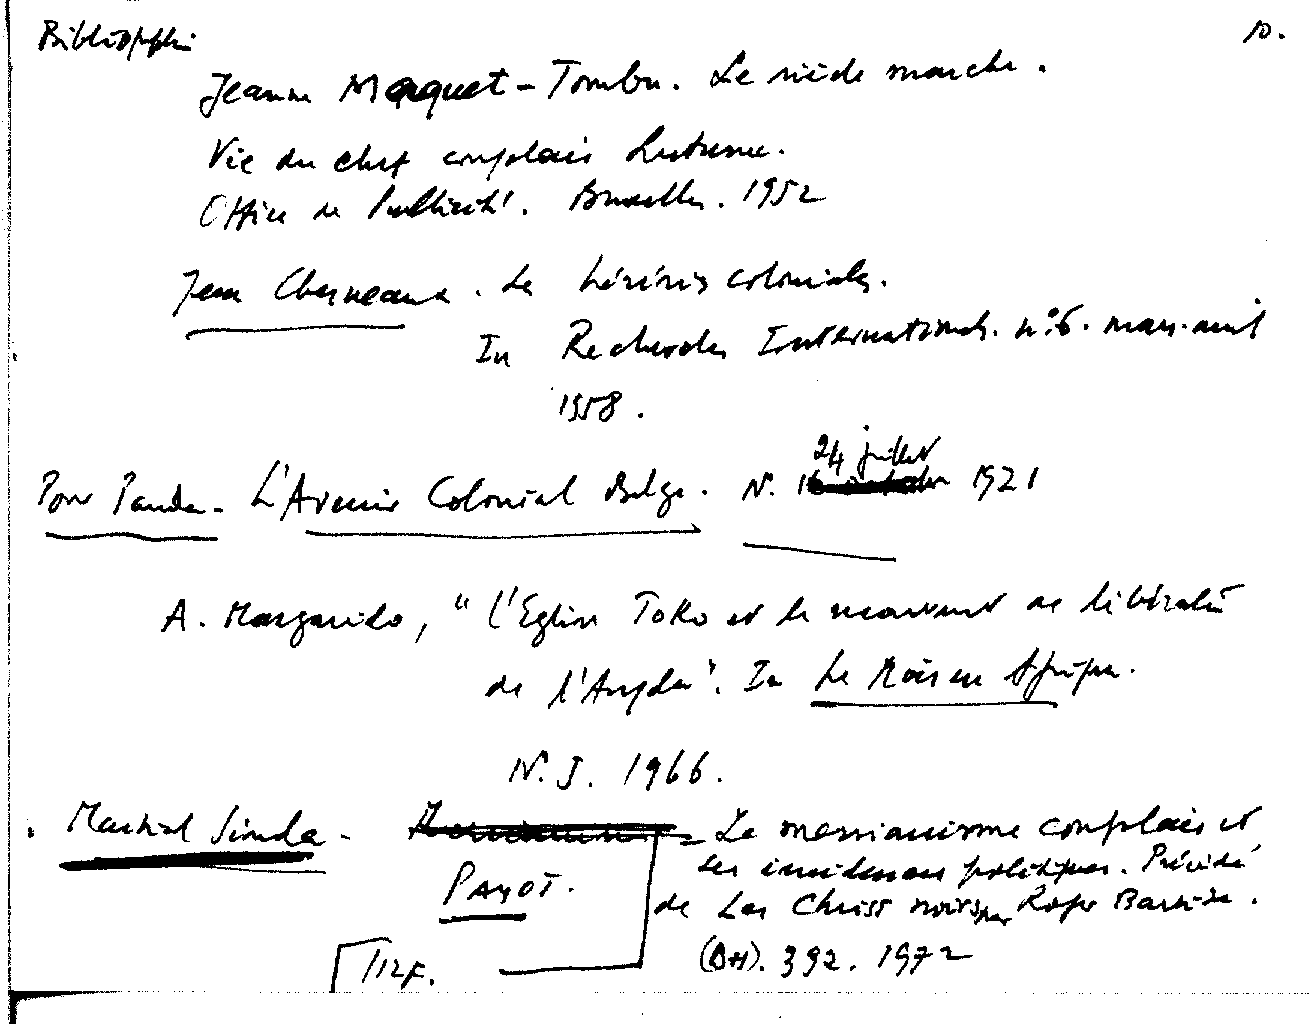 Bibliographie
10.
Jeanne Maquet-Tombu. Le siècle marche.
Vie du chef congolais Lutunu.
Office de Publicité. Bruxelles. 1952
Jean Chesneaux. Le hérésies coloniales.
In Recherches Internationales. n°6. mars-avril
1958.
24 juillet
Pour Panda - L'Avenir Colonial Belge. N. 1921
A. Margarido, "L'Eglise Toko et le mouvement de libération
de l'Angola". In Le Mois en Afrique.
N. 5. 1966.
Martial Sinda - Le messianisme congolais et
ses incidences politiques. Précédé
PAYOT.
de Les Christs noirs par Roger Bastide.
(BH). 392. 1972
72F.